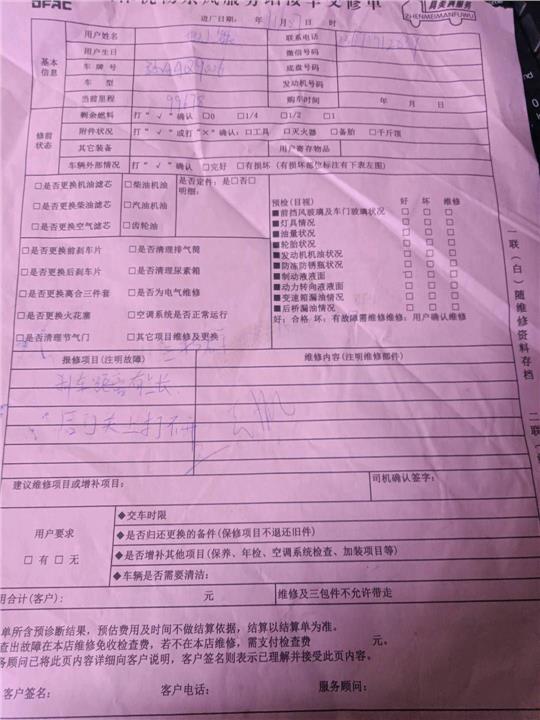 DFAC
服务站接车交修单
真美满服务
ZHENMEIMANFUWU
进厂日期： 年 月 日 时
基本信息
用户姓名 联系电话
用户生日 微信号码
车 牌 号 底盘号码
车 型 发动机号码
当前里程 99678 购车时间 年 月 日
修前状态
剩余燃料 打“√”确认 □0 □1/4 □1/2 □1
附件状况 打“√”或打“×”确认：□工具 □灭火器 □备胎 □千斤顶
其它装备 用户寄存物品
车辆外部情况 打“√”确认 □完好 □有损坏（有损坏部位标注有下表左图）
□是否更换机油滤芯 □柴油机油
□是否更换柴油滤芯 □汽油机油
□是否更换空气滤芯 □齿轮油
是否定件：是□否□
明细：
□是否更换前刹车片 □是否清理排气筒
□是否更换后刹车片 □是否清理尿素箱
□是否更换离合三件套 □是否为电气维修
□是否更换火花塞 □空调系统是否正常运行
□是否清理节气门 □其它项目维修及更换
预检（目视） 好 坏 维修
■前挡风玻璃及车门玻璃状况 □ □ □
■灯具情况 □ □ □
■油量状况 □ □ □
■轮胎状况 □ □ □
■发动机机油状况 □ □ □
■防冻防锈瓶状况 □ □ □
■制动液液面 □ □ □
■动力转向液液面 □ □ □
■变速箱漏油情况 □ □ □
■后桥漏油情况 □ □ □
好：合格 坏：有故障需维修维修：用户确认维修
报修项目（注明故障） 维修内容（注明维修部件）
刹车距离有点长
后门关上打不开
建议维修项目或增补项目： 司机确认签字：
用户要求
□有 □无
◆交车时限
◆是否归还更换的备件（保修项目不退还旧件）
◆是否增补其他项目（保养、年检、空调系统检查、加装项目等）
◆车辆是否需要清洁：
用合计（客户）： 元 维修及三包件不允许带走
单所含预诊断结果，预估费用及时间不做结算依据，结算以结算单为准。
查出故障在本店维修免收检查费，若不在本店维修，需支付检查费 元。
务顾问已将此页内容详细向客户说明，客户签名则表示已理解并接受此页内容。
客户签名： 客户电话： 服务顾问：
一联（白）随维修资料存档
二联（